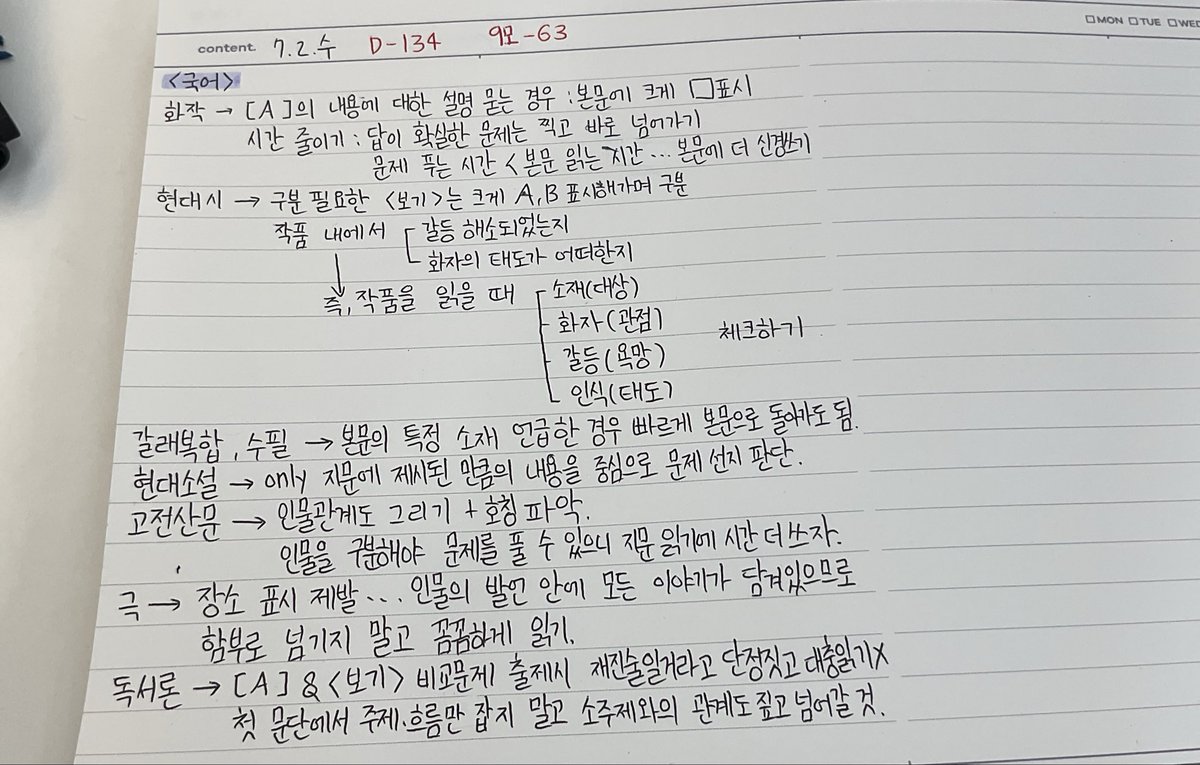 □MON □TUE □WED
content. 7.2.수 D-134 9모-63
<국어>
화작 → [A]의 내용에 대한 설명 묻는 경우 : 본문에 크게 □표시
시간 줄이기 : 답이 확실한 문제는 찍고 바로 넘어가기
문제 푸는 시간 < 본문 읽는 시간 ... 본문에 더 신경쓰기
현대시 → 구분 필요한 <보기>는 크게 A,B 표시해가며 구분
작품 내에서 갈등 해소되었는지
화자의 태도가 어떠한지
즉, 작품을 읽을 때 소재(대상)
화자(관점) 체크하기
갈등(욕망)
인식(태도)
갈래복합, 수필 → 본문의 특정 소재 언급한 경우 빠르게 본문으로 돌아가도 됨.
현대소설 → only 지문에 제시된 만큼의 내용을 중심으로 문제 선지 판단.
고전산문 → 인물관계도 그리기 + 호칭 파악.
인물을 구분해야 문제를 풀 수 있으니 지문 읽기에 시간 더 쓰자.
극 → 장소 표시 제발... 인물의 발언 안에 모든 이야기가 담겨있으므로
함부로 넘기지 말고 꼼꼼하게 읽기.
독서론 → [A] & <보기> 비교문제 출제시 재진술일거라고 단정짓고 대충읽기X
첫 문단에서 주제·흐름만 잡지 말고 소주제와의 관계도 짚고 넘어갈 것.